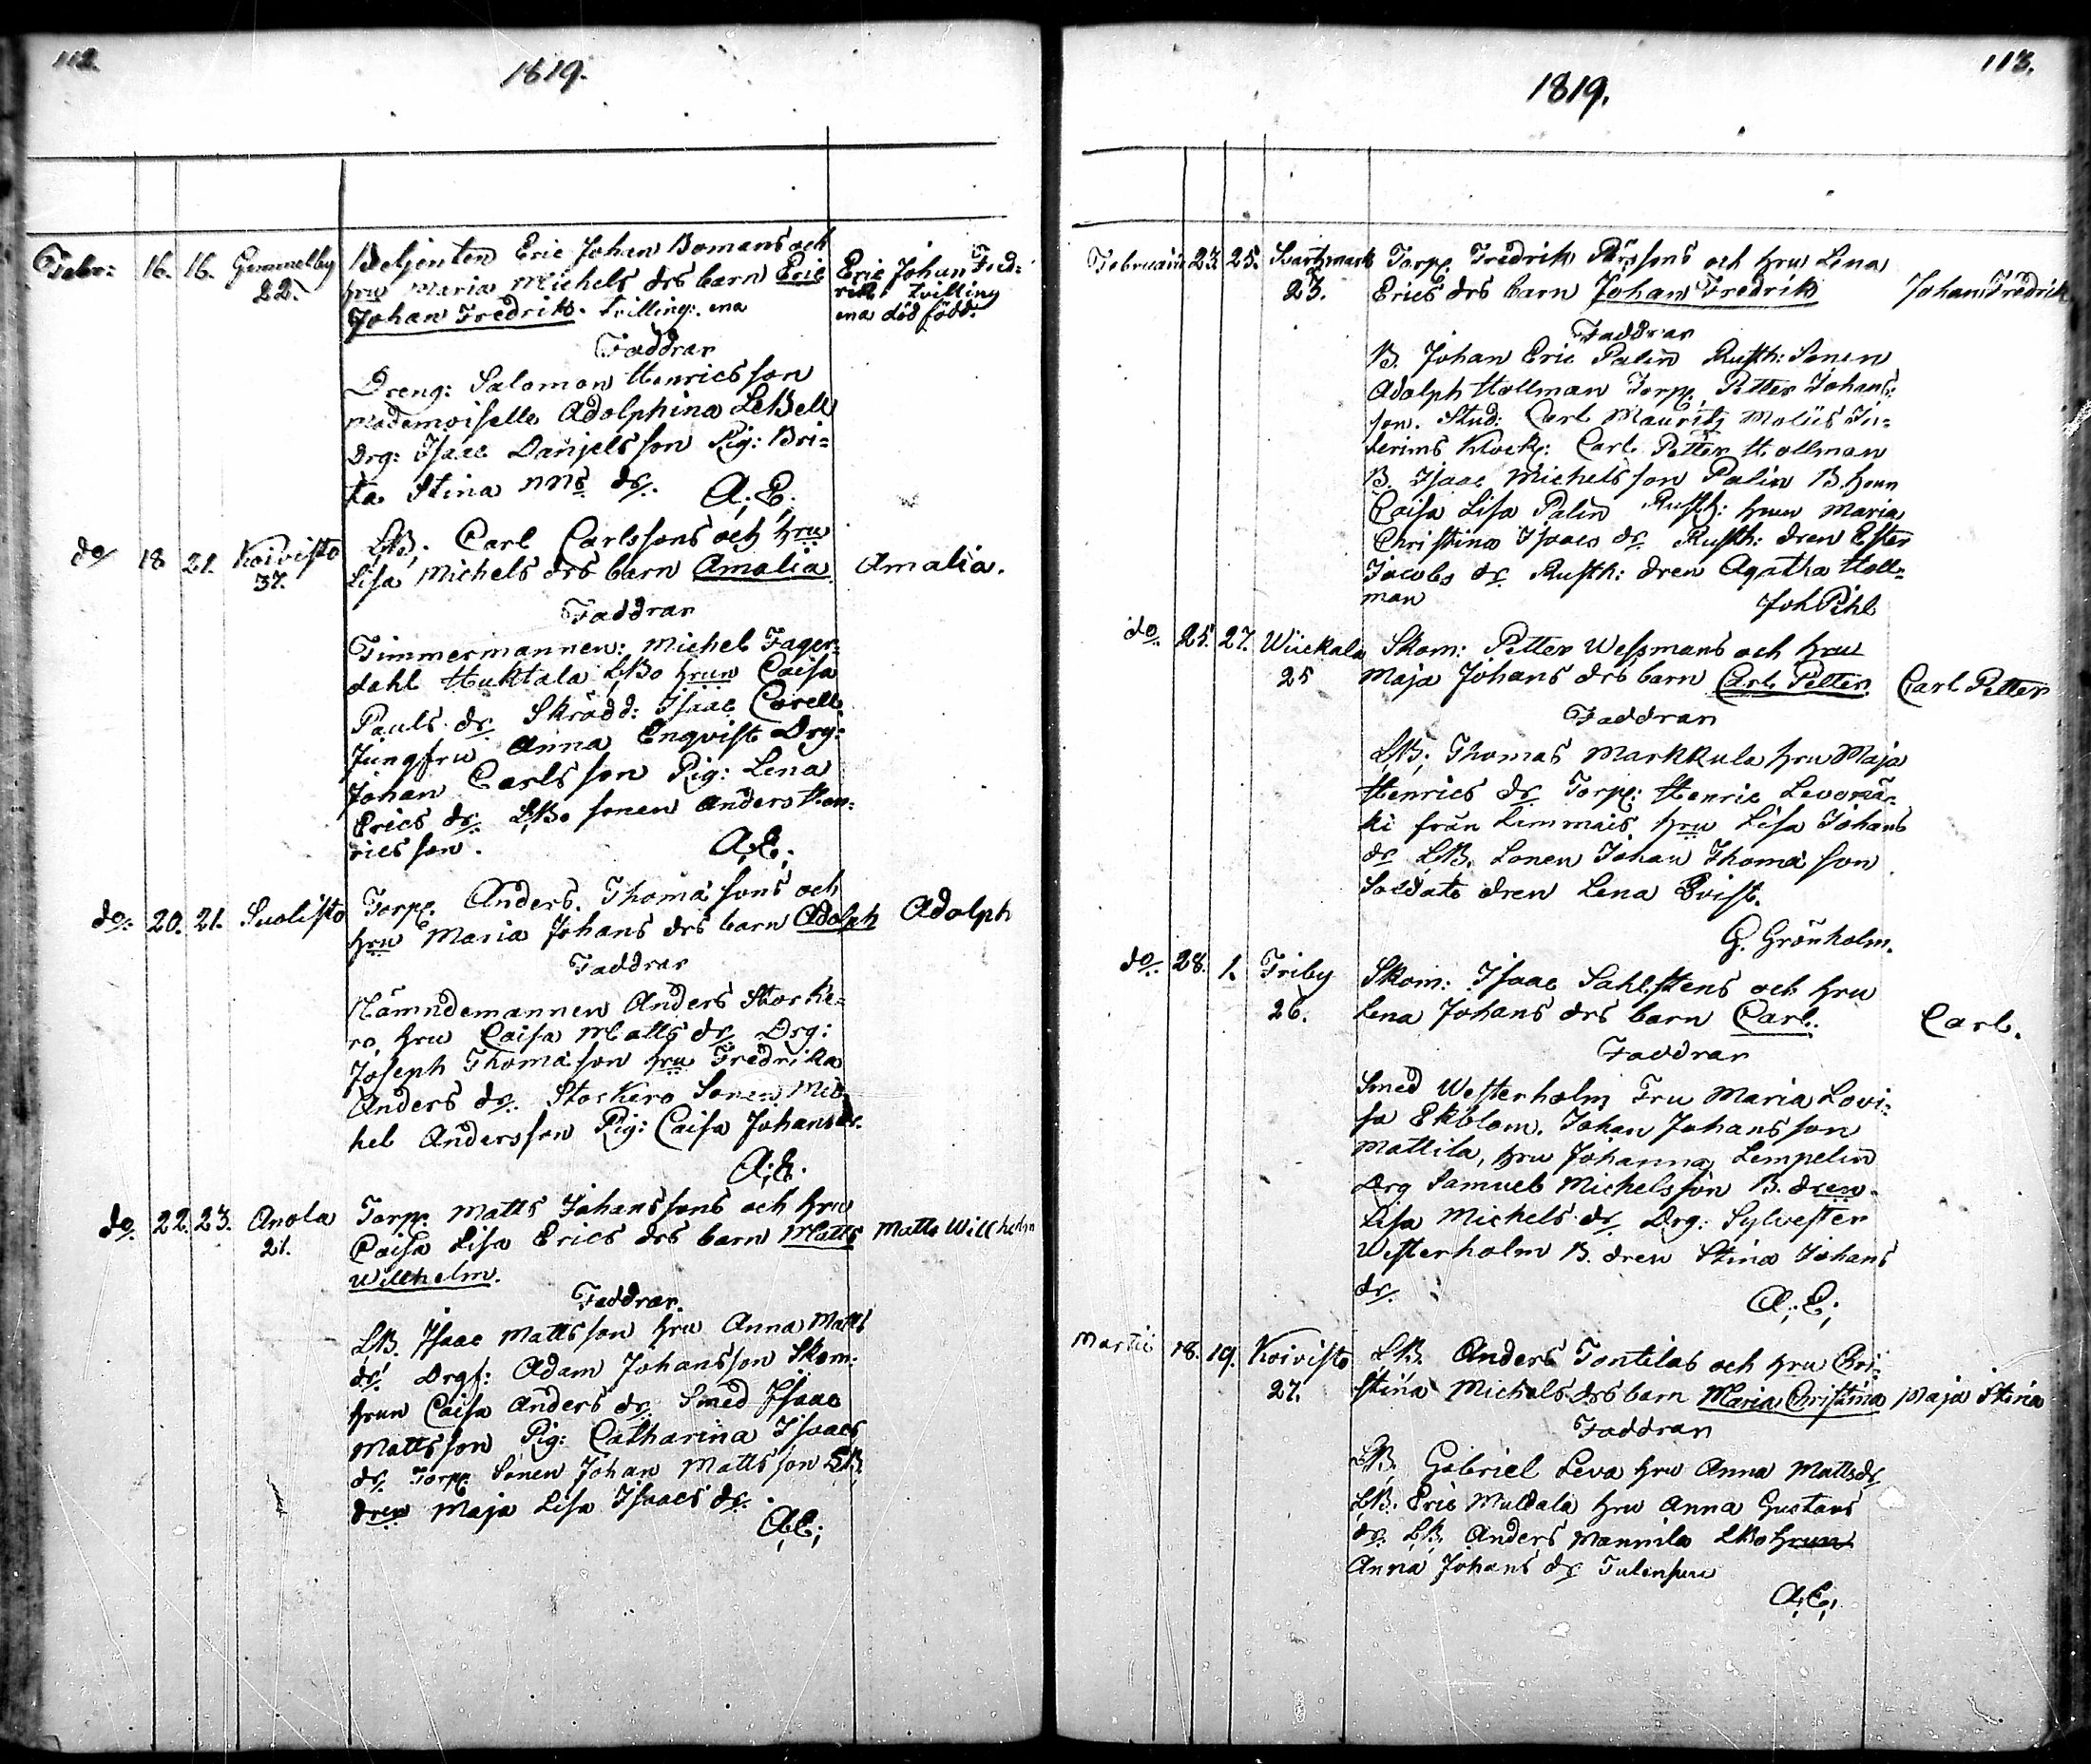 112.
1819.
Febr: 16. 16. Gammelby Betjenten Eric Johan Bomans och Eric Johan Fred:
22. hru Maria Michels drs barn Eric rik tvilling
Johan Fredrik. tvilling: ena ena död född.
Faddrar
Dreng: Salomon Henricsson
Mademoiselle Adolphina LeBell
Drg: Isaac Danjelsson Pig: Bri=
ta Stina MMs dr. A: E:
do 18 21. Koivisto LB: Carl Carlssons och hru
37. Lisa Michels drs barn Amalia Amalia.
Faddrar
Timmermannen: Michel Fager:
dahl Huktala LBo hrun Caisa
Pauls dr Skrädd: Isaac Corell
Jungfru Anna Enqvist Drg:
Johan Carlsson Pig: Lena
Erics dr. LBo sonen Anders Hen:
ricsson. A: E:
do: 20. 21. Suolisto Torp. Anders Thomasons och
hru Maria Johans drs barn Adolph Adolph
Faddrar
Nämndemannen Anders Storke=
ro hru Caisa Matts dr Drg:
Joseph Thomason hru Fredrika
Anders dr. Storkero Sonen Mic
hel Andersson Pig: Caisa Johans dr.
A: E.
do. 22. 23. Anola Torp. Matts Johanssons och hru
21. Caisa Lisa Erics drs barn Matts Matts Willhelm
Willhelm.
Faddrar.
LB. Isaac Mattsson hru Anna Matts
dr Drgs: Adam Johansson Skom:
hrun Caisa Anders dr. Smed Isaac
Mattsson Pig: Catharina Isaacs
dr. Torp. Sonen Johan Mattsson LB
dren Maja Lisa Isaacs dr.
A: E:
113.
1819.
Februarii 23. 25. Svartsmark Torp. Fredrik Pärssons och hru Lena
23. Erics drs barn Johan Fredrik Johan Fredrik
Faddrar
B. Johan Eric Palin Rusth: Sonen
Adolph Hollman Torp. Petter Johans:
son. Stud: Carl Mauritz Moliis In=
terims Klock: Carl Petter Hollman
B. Isaac Michelsson Palin B. hrun
Caisa Lisa Palin Rusth: hrun Maria
Christina Isaacs dr Rusth: dren Ester
Jacobs dr Rusth: dren Agatha Holl=
man Joh Pihl
do. 25. 27. Wiickala Skom: Petter Wessmans och hru
25 Maja Johans drs barn Carl Petter Carl Petter
Faddrar
LB: Thomas Markkula hru Maja
Henrics dr Torp: Henric Levomä=
ki från Lemmais hru Lisa Johans
dr LB. Sonen Johan Thomason
Soldats dren Lena Qvist.
G. Grönholm.
do: 28. 1. Friby Skom: Isaac Sahlstens och hru
26. Lena Johans drs barn Carl. Carl.
Faddrar
Smed Westerholm Fru Maria Lovi=
sa Ekblom. Johan Johansson
Mattila, hru Johanna Lempelin
Drg Samuel Michelsson B. dren
Lisa Michels dr Drg: Sylvester
Westerholm B. dren Stina Johans
dr. A: E:
Martii 18. 19. Koivisto LB. Anders Tontilas och hru Chri=
27. stina Michels drs barn Maria Christina Maja Stina
Faddrar
LB. Gabriel Leva hru Anna Matts dr
LB. Eric Muldala hru Anna Gustavs
dr. LB. Anders Mannila LBo hrun
Anna Johans dr
A: E: